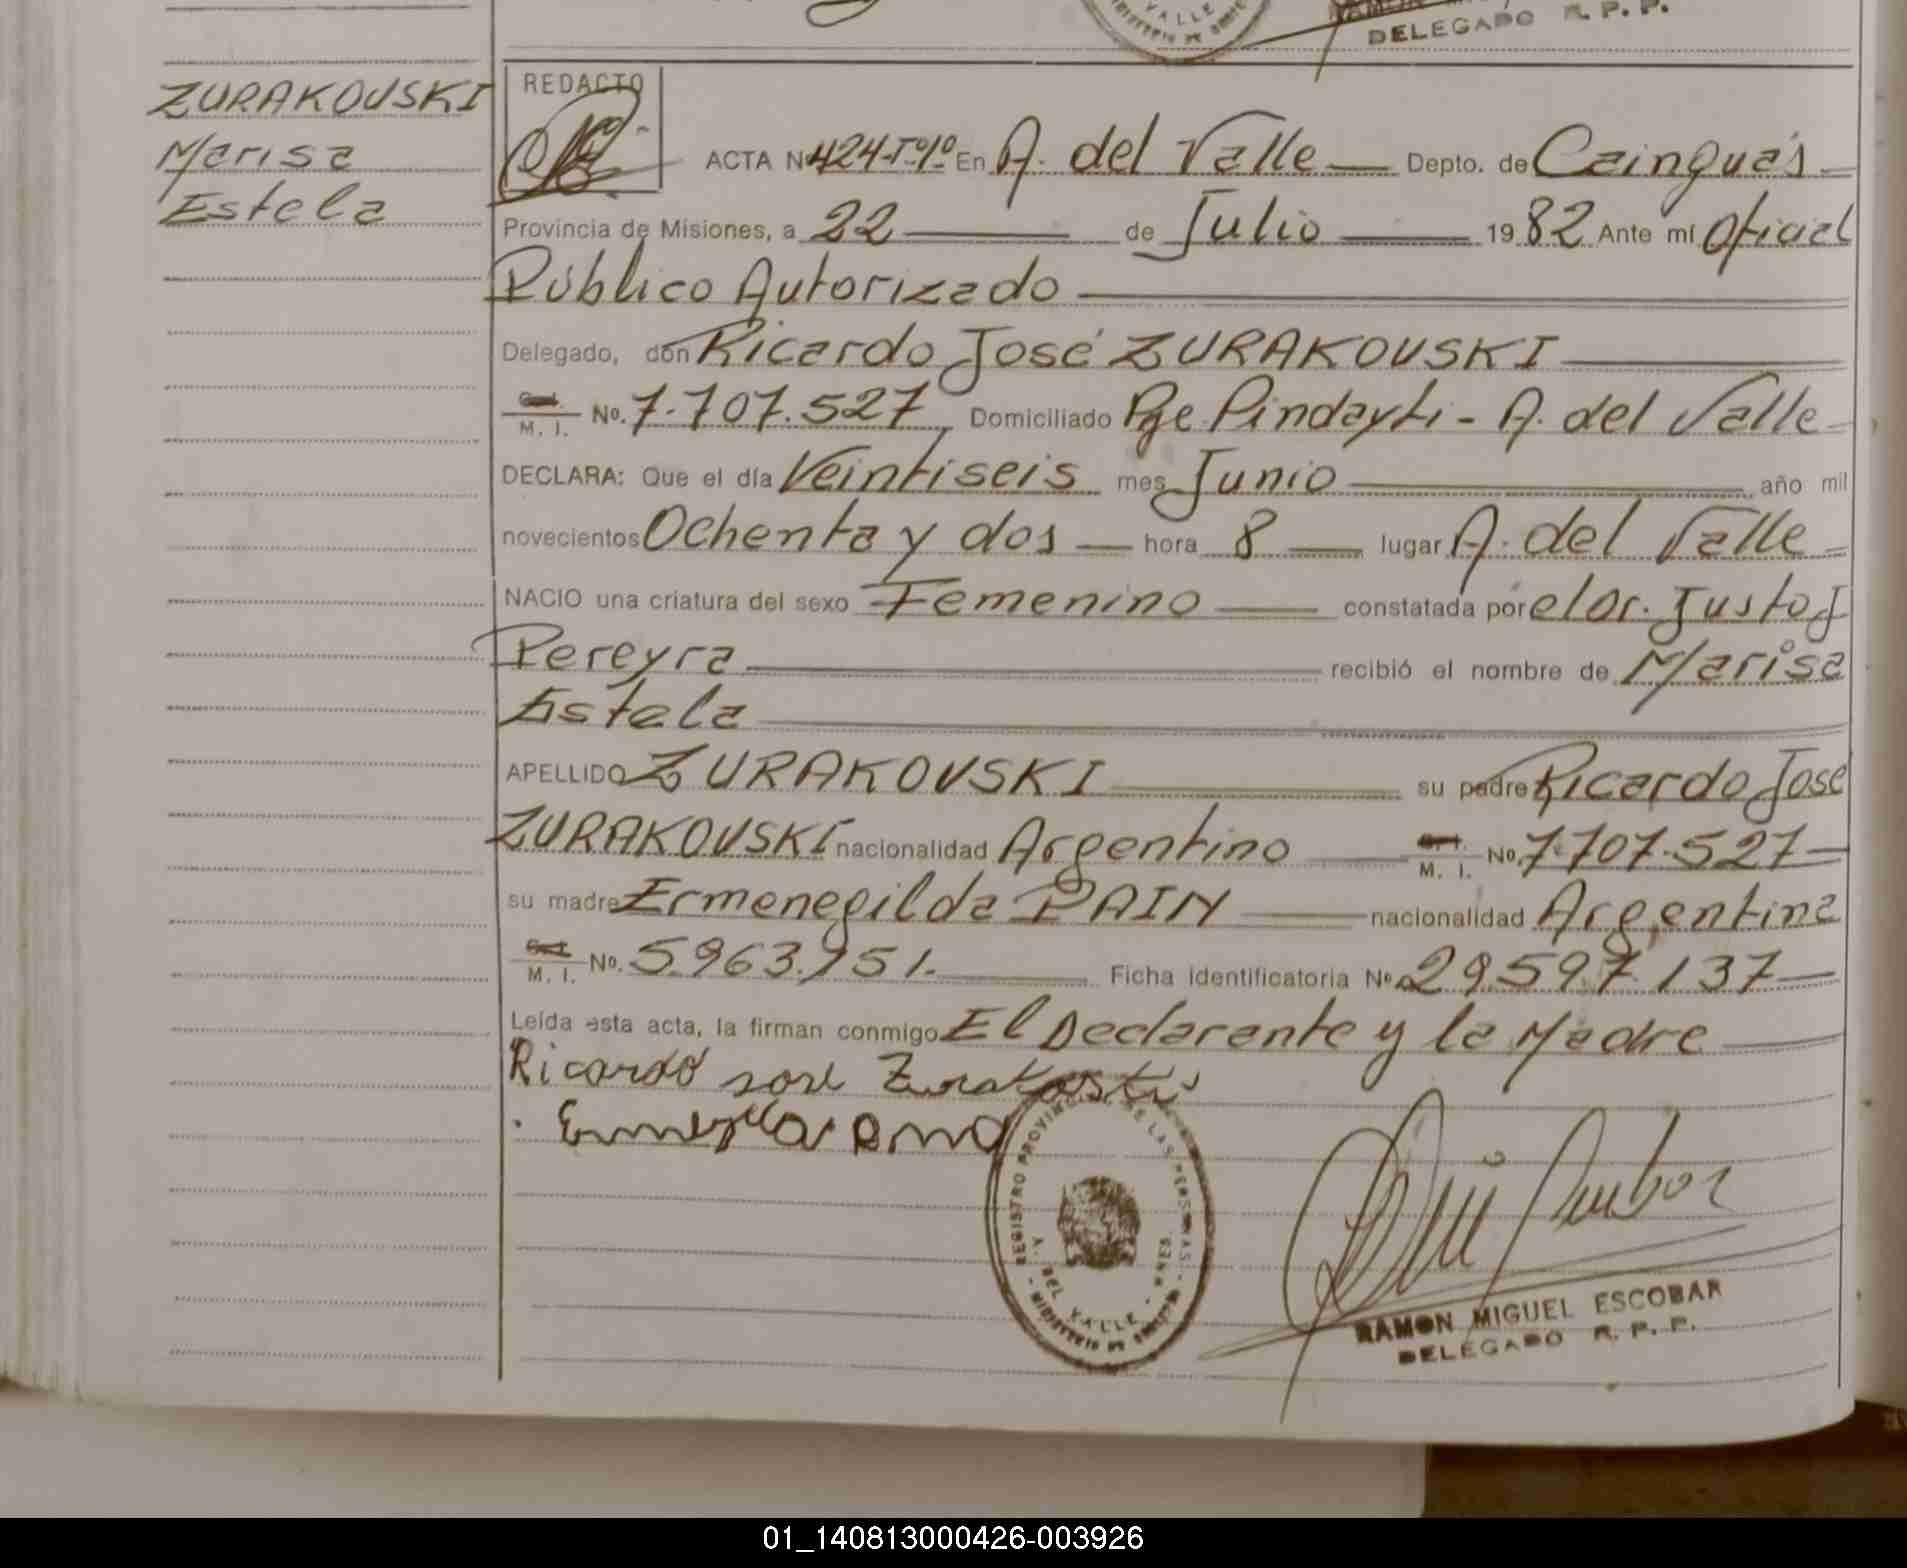 VALLE
DELEGADO R. P. P.
ZURAKOVSKI
Marisa
Estela
REDACTO
ACTA Nº 424-Tº1º En A. del Valle — Depto. de Cainguás
Provincia de Misiones, a 22 de Julio 1982 Ante mí Oficial
Público Autorizado
Delegado, don Ricardo José ZURAKOVSKI
M. I. No. 7.707.527 Domiciliado Pje Pindayti - A. del Valle
DECLARA: Que el día Veintiseis mes Junio año mil
novecientos Ochenta y dos — hora 8 — lugar A. del Valle
NACIO una criatura del sexo Femenino constatada por el Dr. Justo J
Pereyra recibió el nombre de Marisa
Estela
APELLIDO ZURAKOVSKI su padre Ricardo José
ZURAKOVSKI nacionalidad Argentino M. I. No. 7.707.527
su madre Ermenegilda PAIN nacionalidad Argentina
M. I. No. 5.963.951. Ficha identificatoria Nº 29.597.137
Leída esta acta, la firman conmigo El Declarante y la Madre
Ricardo José Zurakoski
REGISTRO PROVINCIAL DE LAS PERSONAS
A. DEL VALLE - MNES.
RAMON MIGUEL ESCOBAR
DELEGADO R. P. P.
01_140813000426-003926